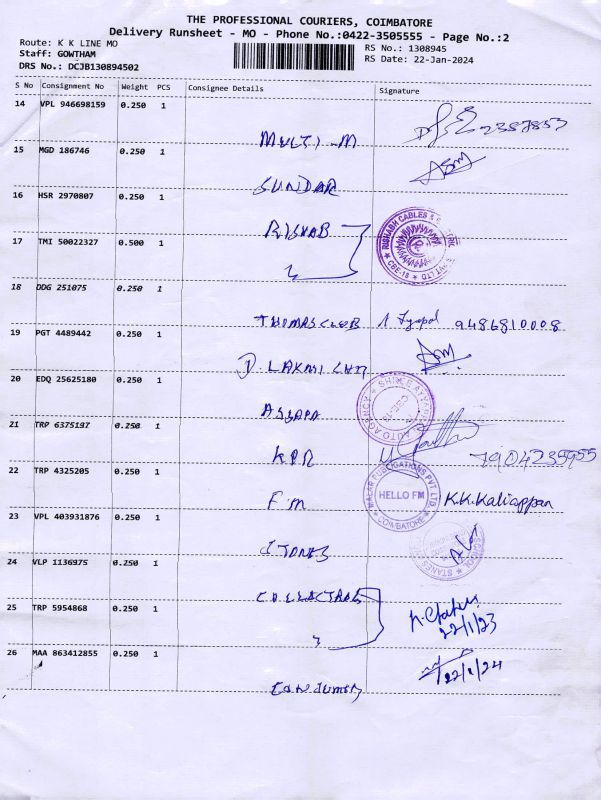 THE PROFESSIONAL COURIERS, COIMBATORE
Delivery Runsheet - MO - Phone No.:0422-3505555 - Page No.:2
Route: K K LINE MO
RS No.: 1308945
Staff: GOWTHAM
RS Date: 22-Jan-2024
DRS No.: DCJB130894502
S No Consignment No Weight PCS Consignee Details Signature
14 VPL 946698159 0.250 1
MULTI-M
15 MGD 186746 0.250 1
SUNDAR
16 HSR 2970807 0.250 1
RISHAB
RISHABH CABLES
CBE-18
17 TMI 50022327 0.500 1
18 DDG 251075 0.250 1
THOMAS CLUB 9486810008
19 PGT 4489442 0.250 1
D. LAXMI
20 EDQ 25625180 0.250 1
SHREE
AUTO AGENCY
CBE-18
21 TRP 6375197 0.250 1
KPR 7904235955
22 TRP 4325205 0.250 1
F.M
MALAR PUBLICATIONS PVT LTD
HELLO FM
COIMBATORE
K.K.Kaliappan
23 VPL 403931876 0.250 1
STANES SCHOOL
24 VLP 1136975 0.250 1
25 TRP 5954868 0.250 1
22/1/23
26 MAA 863412855 0.250 1
22/1/24